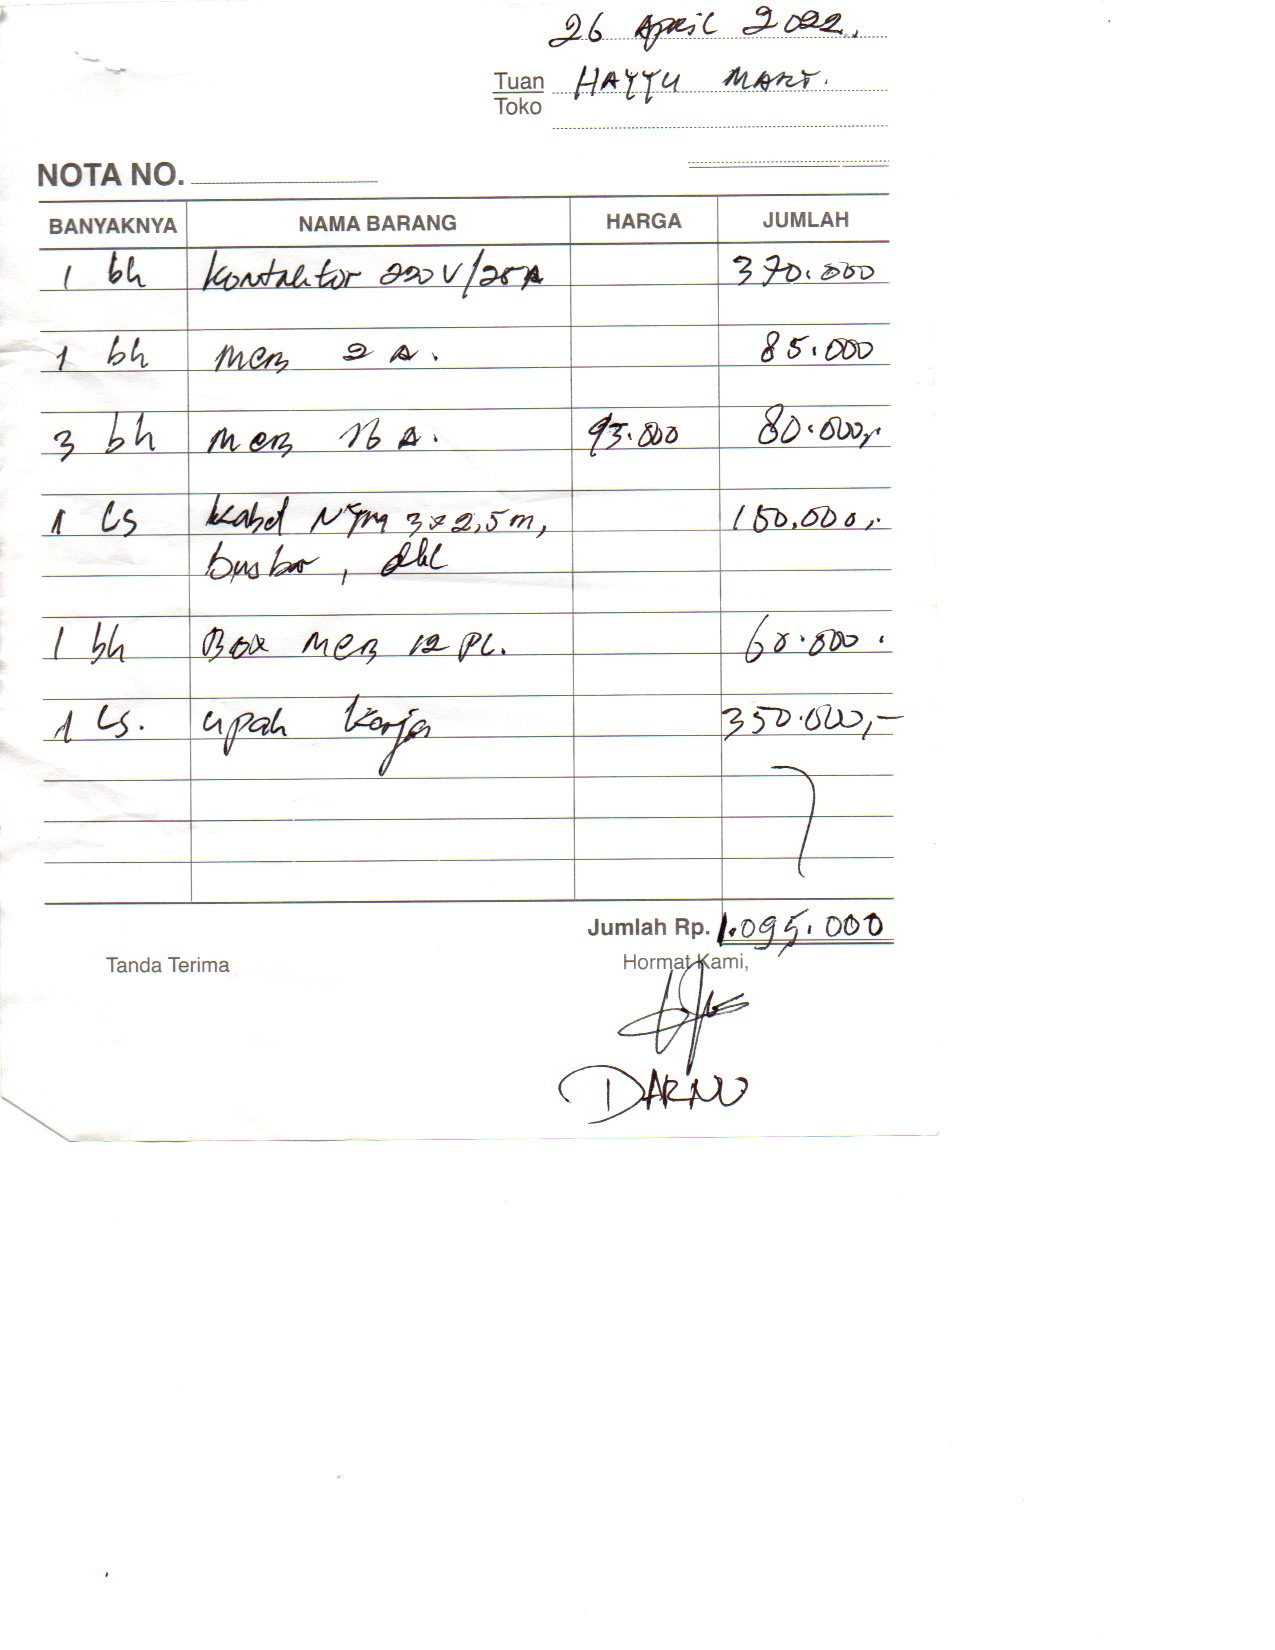 26 April 2022.
Tuan HAYYU MART.
Toko
NOTA NO.
BANYAKNYA NAMA BARANG HARGA JUMLAH
1 bh Kontaktor 220 V/25A 370.000
1 bh MCB 2 A. 85.000
3 bh MCB 16 A. 93.000 80.000,-
1 LS Kabel NYM 3x2,5m, 150.000,-
busbar, dll
1 bh Box MCB 12 PL. 60.000.
1 LS. upah Kerja 350.000,-
Jumlah Rp. 1.095.000
Tanda Terima Hormat Kami,
DARNO